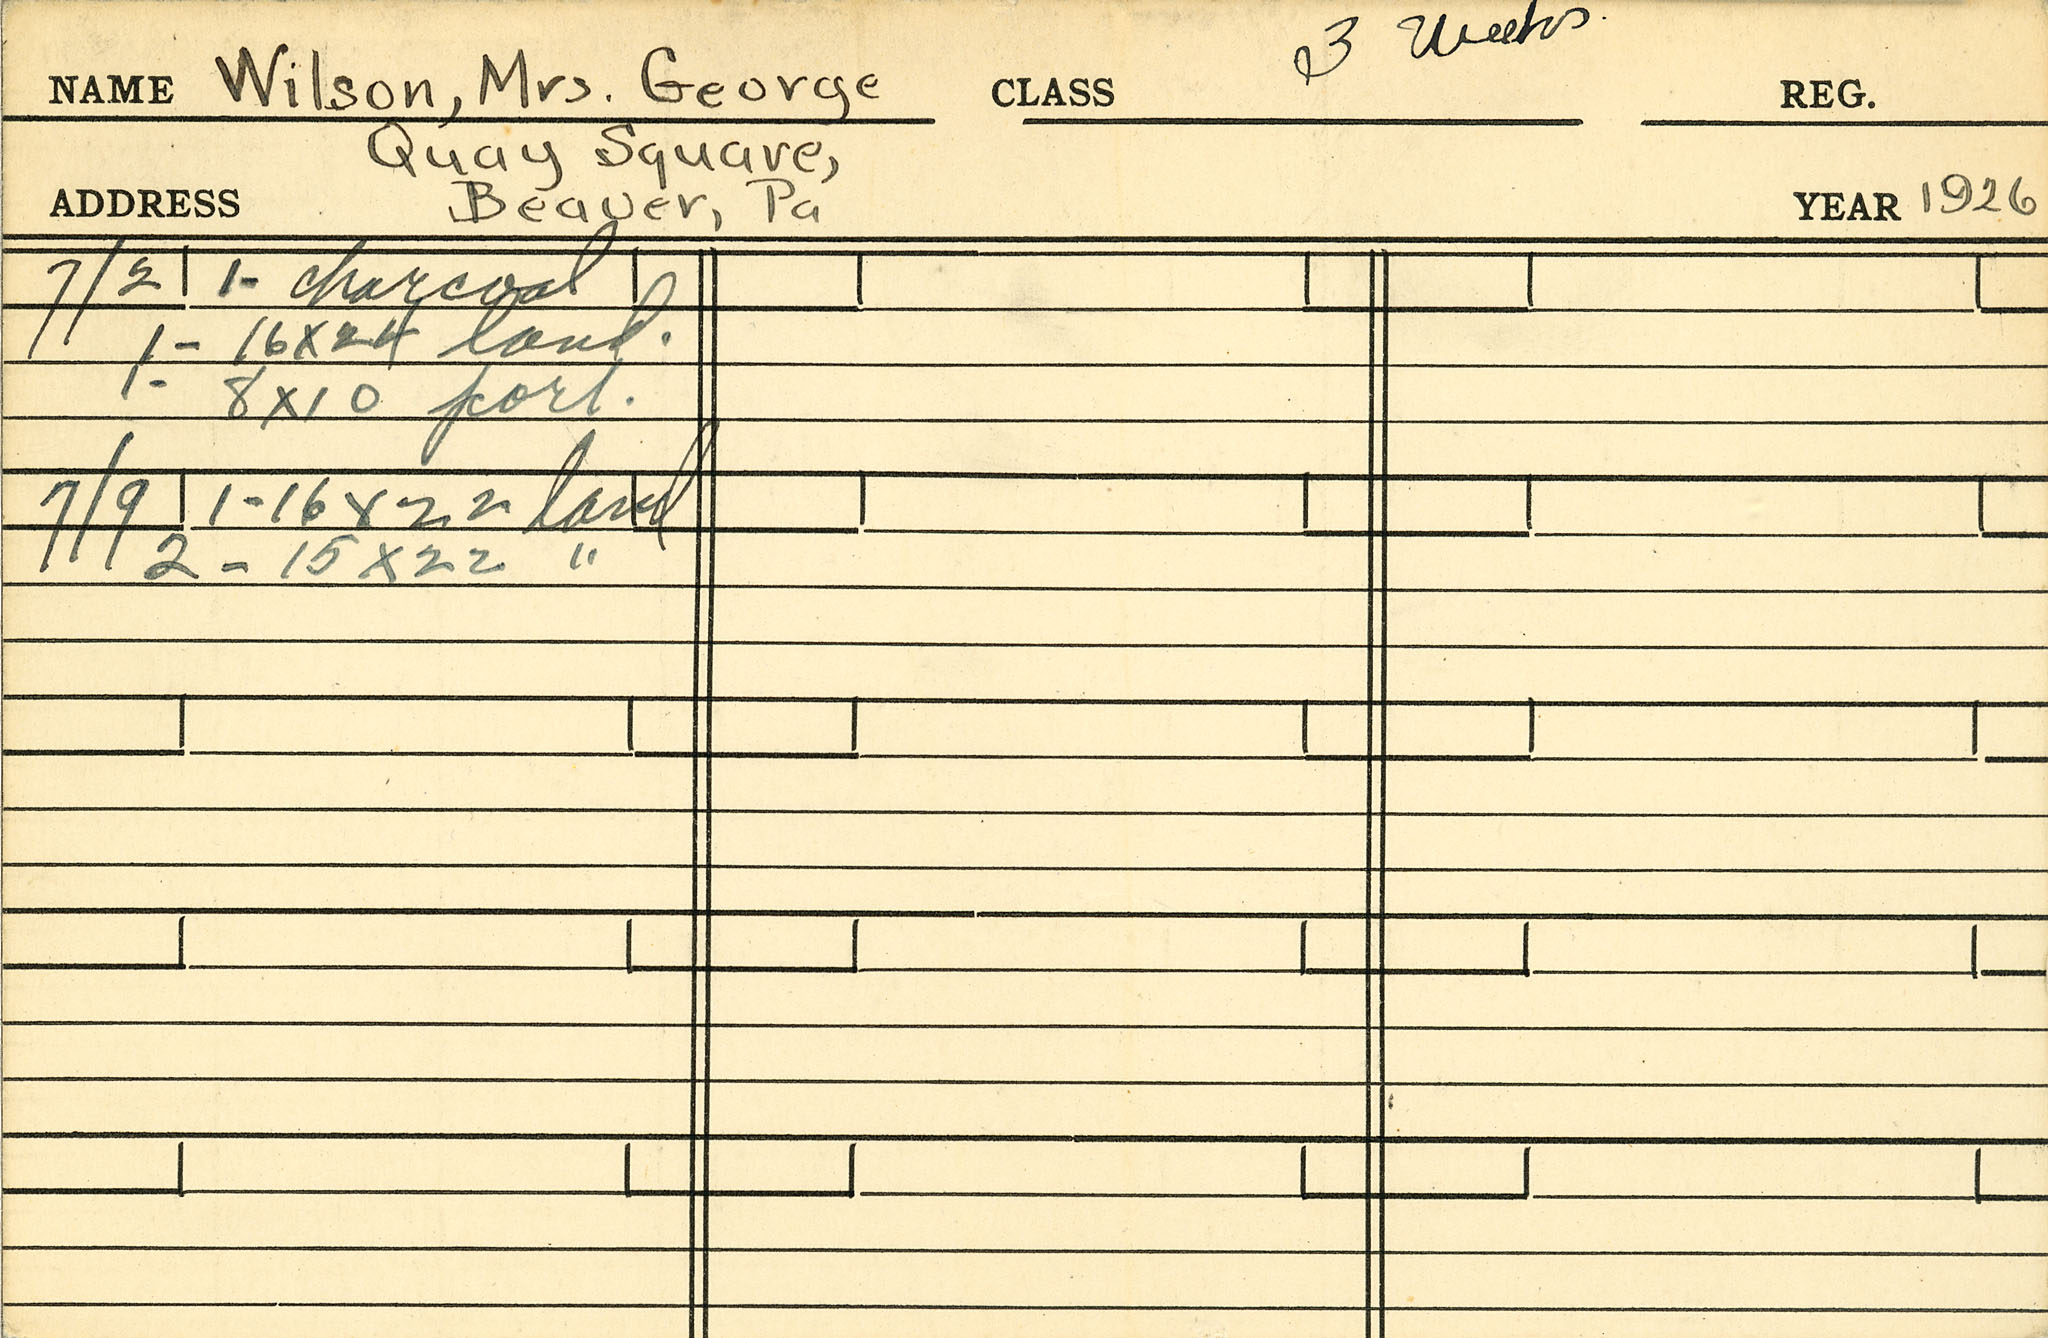 3 Weeks.
NAME Wilson, Mrs. George CLASS REG.
Quay Square,
ADDRESS Beaver, Pa YEAR 1926
7/2 1- charcoal
1- 16x24 land.
1- 8x10 port.
7/9 1-16x22 land
2 - 15x22 "